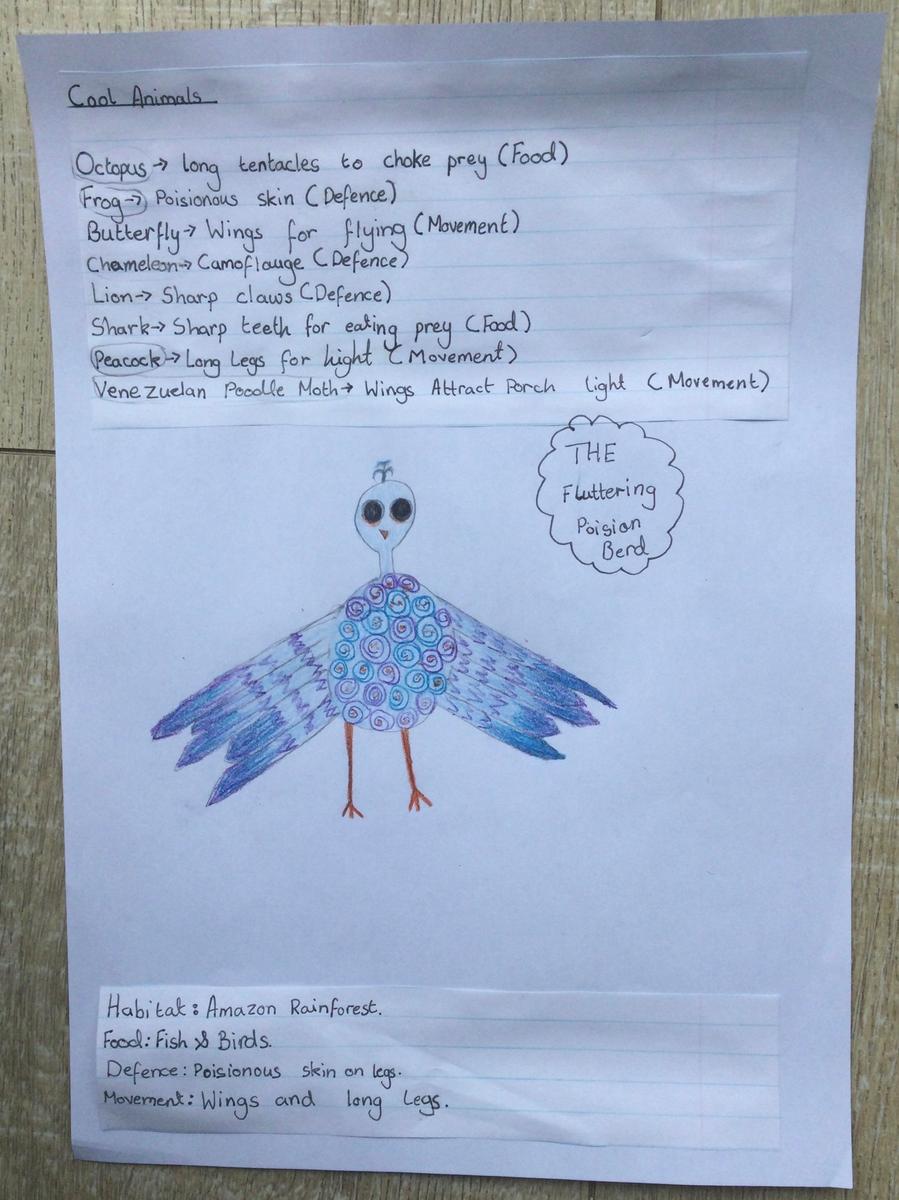 Cool Animals
Octopus → long tentacles to choke prey (Food)
Frog → Poisionous skin (Defence)
Butterfly → Wings for flying (Movement)
Chameleon → Camoflauge (Defence)
Lion → Sharp claws (Defence)
Shark → Sharp teeth for eating prey (Food)
Peacock → Long Legs for hight (Movement)
Venezuelan Poodle Moth → Wings Attract Porch light (Movement)
THE
Fluttering
Poision
Berd
Habitat: Amazon Rainforest.
Food: Fish & Birds.
Defence: Poisionous skin on legs.
Movement: Wings and long Legs.